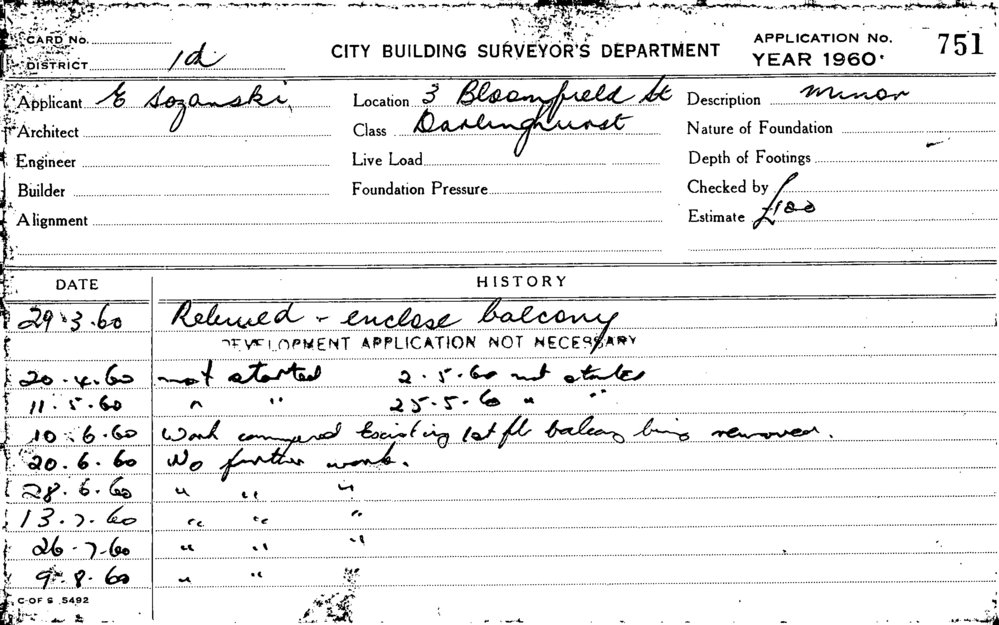 CARD No. APPLICATION No. 751
DISTRICT 1d CITY BUILDING SURVEYOR'S DEPARTMENT YEAR 1960
Applicant E Sozanski Location 3 Bloomfield St Description Minor
Architect Class Darlinghurst Nature of Foundation
Engineer Live Load Depth of Footings
Builder Foundation Pressure Checked by
Alignment Estimate £100
DATE HISTORY
29.3.60 - enclose balcony
DEVELOPMENT APPLICATION NOT NECESSARY
20.4.60 not started 2.5.60 not started
11.5.60 " " 25.5.60 " "
10.6.60 Work commenced Existing 1st fl balcony being removed.
20.6.60 No further work.
28.6.60 " " "
13.7.60 " " "
26.7.60 " " "
9.8.60 " " "
C OF S 5492